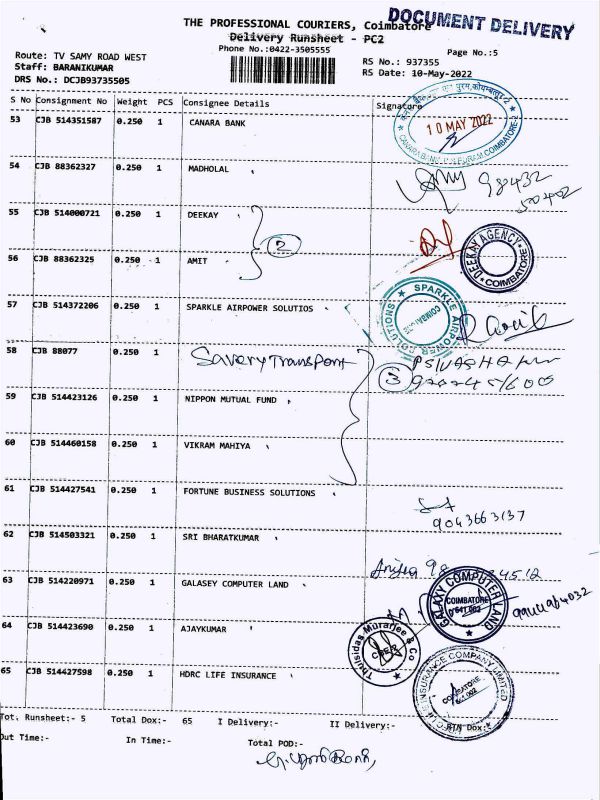 DOCUMENT DELIVERY
THE PROFESSIONAL COURIERS, Coimbatore
Delivery Runsheet - PC2
Phone No.:0422-3505555
Page No.:5
Route: TV SAMY ROAD WEST
RS No.: 937355
Staff: BARANIKUMAR
RS Date: 10-May-2022
DRS No.: DCJB93735505
S No Consignment No Weight PCS Consignee Details Signature
53 CJB 514351587 0.250 1 CANARA BANK
10 MAY 2022
54 CJB 88362327 0.250 1 MADHOLAL
98432
50402
55 CJB 514000721 0.250 1 DEEKAY
2
DEEKAY AGENCY
COIMBATORE
56 CJB 88362325 0.250 1 AMIT
57 CJB 514372206 0.250 1 SPARKLE AIRPOWER SOLUTIOS
SPARKLE AIRPOWER SOLUTIONS
COIMBATORE
58 CJB 88077 0.250 1 Savery Transport
3
59 CJB 514423126 0.250 1 NIPPON MUTUAL FUND
60 CJB 514460158 0.250 1 VIKRAM MAHIYA
61 CJB 514427541 0.250 1 FORTUNE BUSINESS SOLUTIONS
9043663137
62 CJB 514503321 0.250 1 SRI BHARATKUMAR
63 CJB 514220971 0.250 1 GALASEY COMPUTER LAND
GALAXY COMPUTER LAND
COIMBATORE
641 002
64 CJB 514423690 0.250 1 AJAYKUMAR
Thulsidas Murarjee & Co
CBE-2
65 CJB 514427598 0.250 1 HDRC LIFE INSURANCE
LIFE INSURANCE COMPANY LIMITED
COIMBATORE
641 002
Tot. Runsheet:- 5 Total Dox:- 65 I Delivery:- II Delivery:- RTN Dox:-
Out Time:- In Time:- Total POD:-